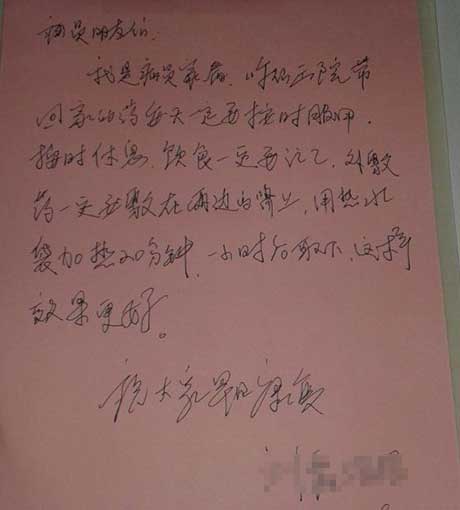 病员朋友们.
我是病员家属，你们出院带
回家的药每天一定要按时服用.
按时休息，饮食一定要记了，外敷
药一定要敷在两边的肾上，用热水
袋加热20分钟，一小时后取下，这样
效果更好。
祝大家早日康复